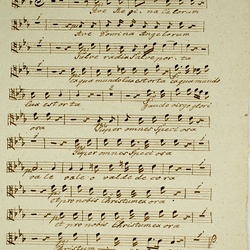 Ave Regina Caelorum
Ave Domina Angelorum
Salve radix Salve porta
Ex qua mundo lux est orta Ex qua mundo
lux est orta Gaude virgo glori
osa Super omnes Speciosa
Super omnes Speciosa
vale vale o valde decora
et pro nobis Christum exora
et pro nobis Christum exora
Christum